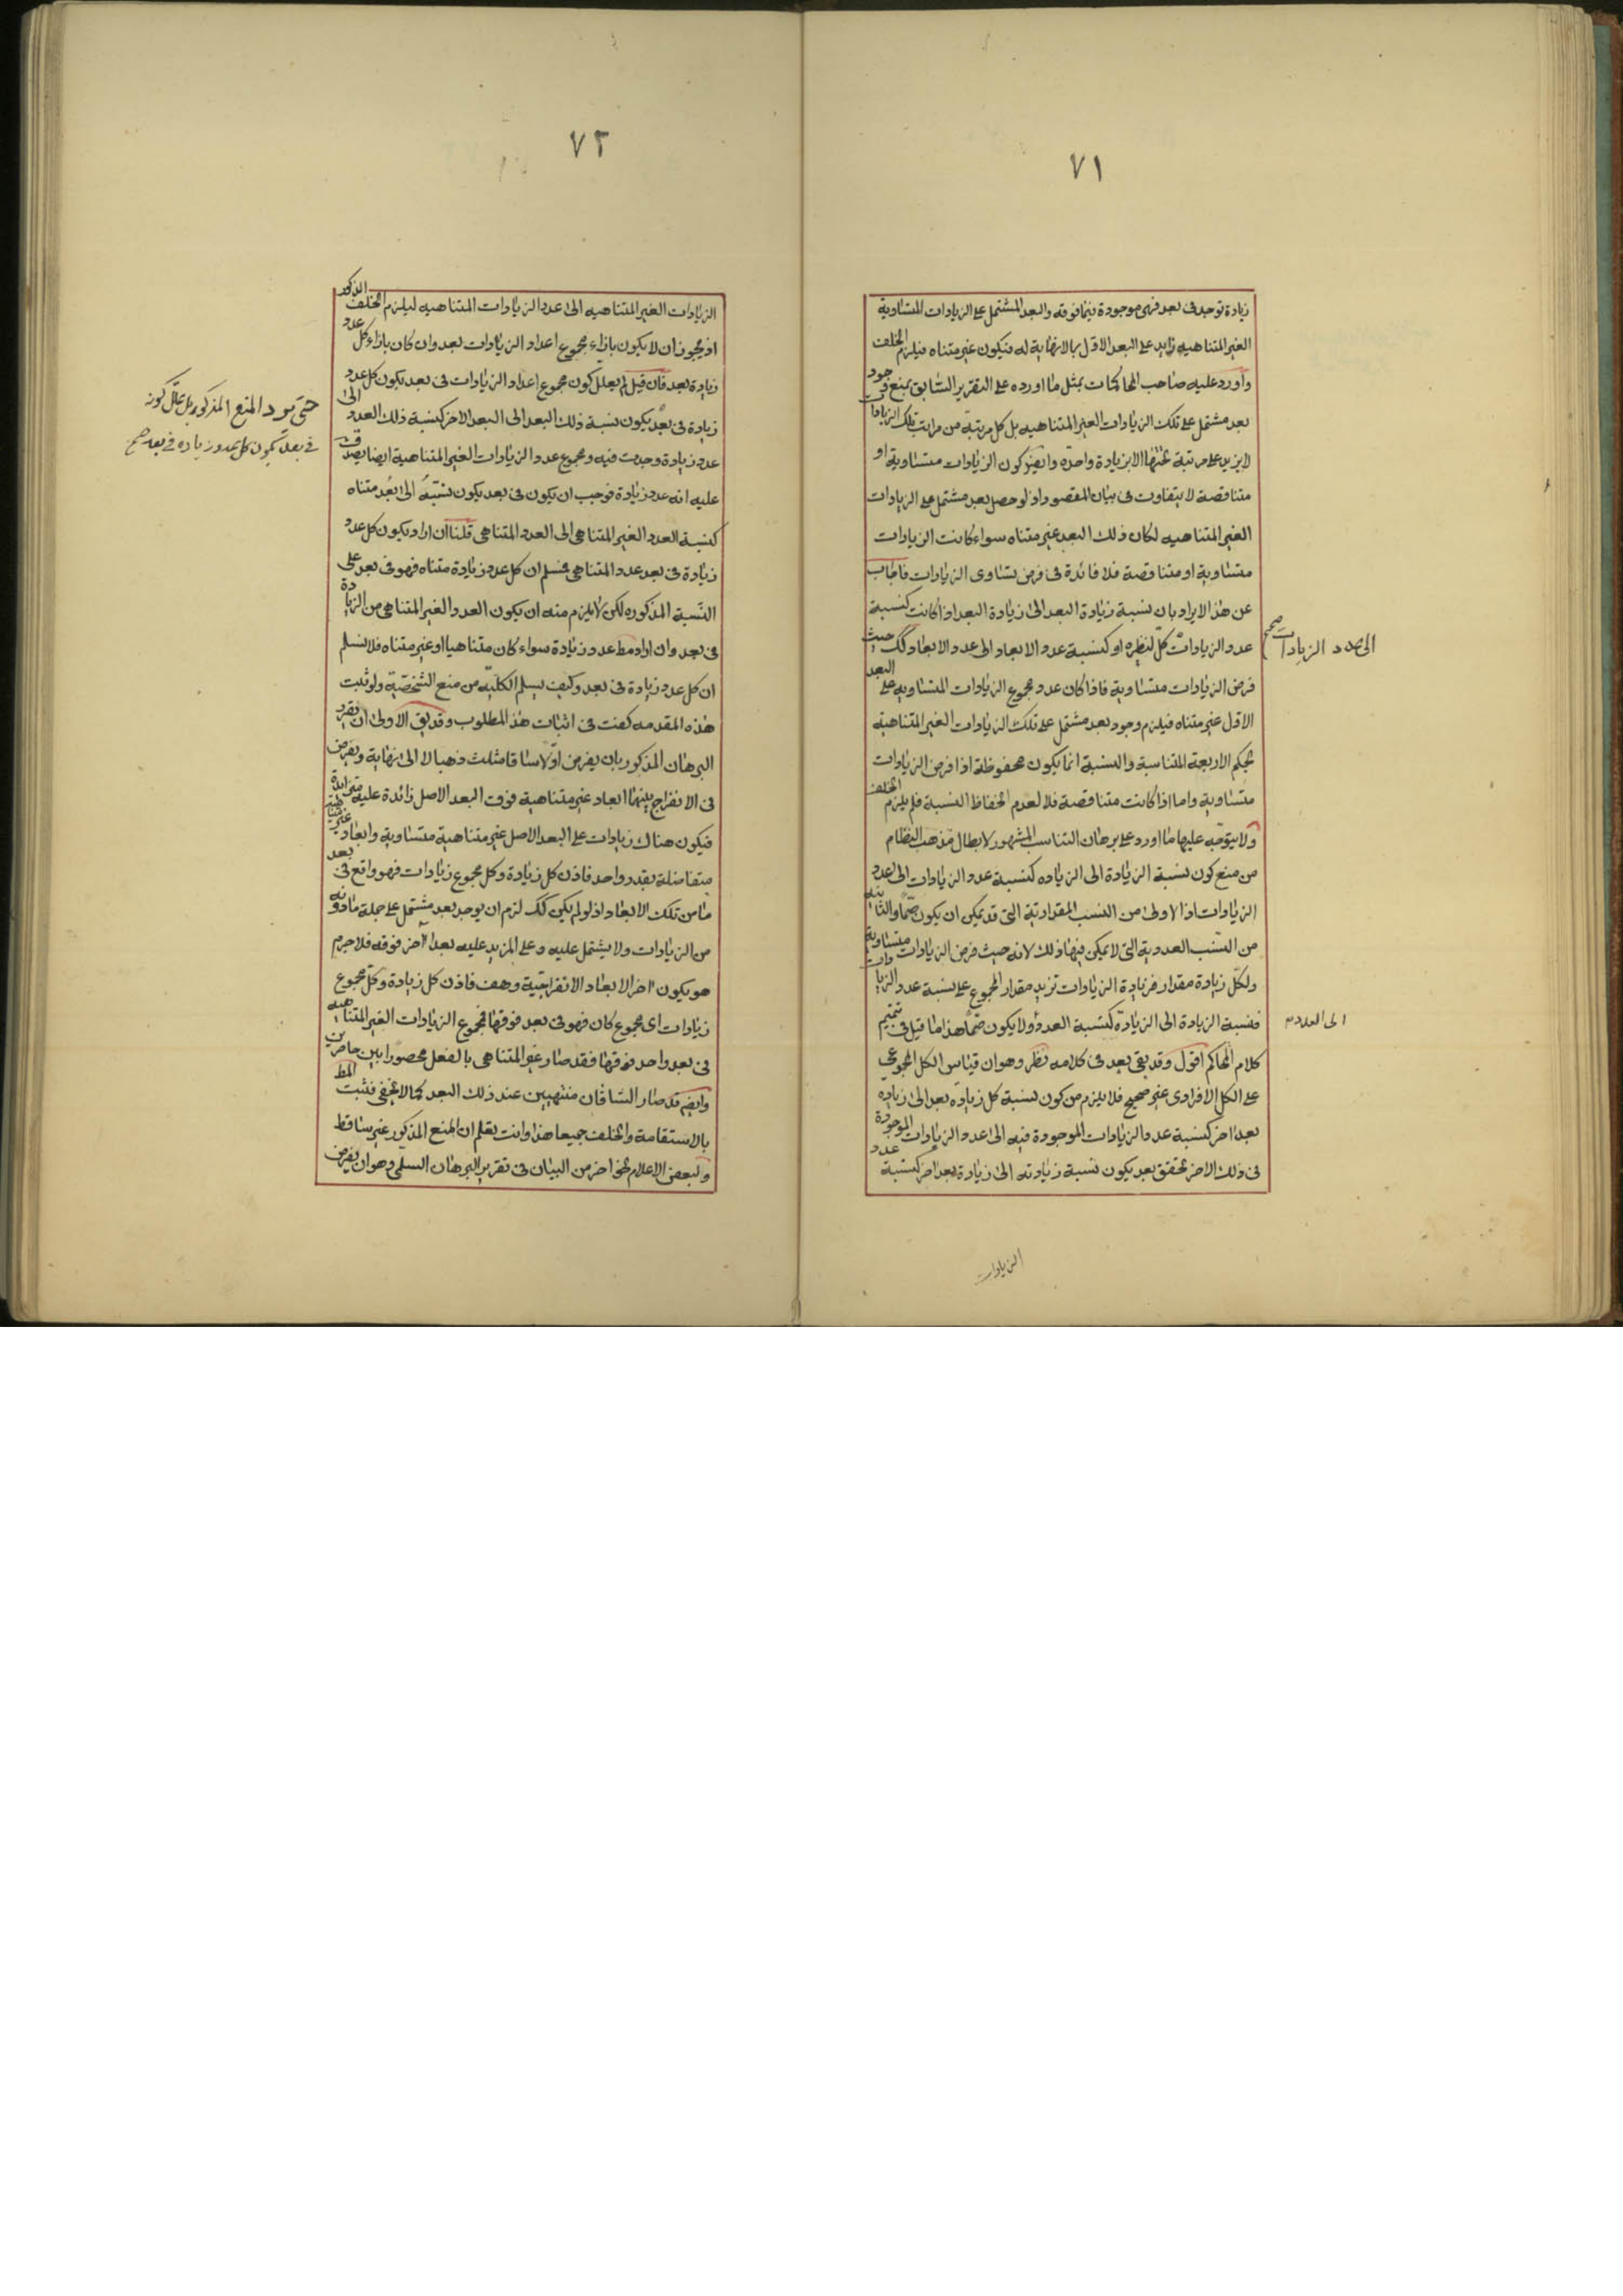 ٧١
زيادة توجد فى بعد فهى موجودة فيما فوقه والبعد المشتمل على الزيادات المتساوية
الغير المتناهيه زايد على البعد الاول بمالانهاية له فيكون غير متناه فيلزم الخلف
واورد عليه صاحب المحاكمات بمثل ما اورده على التقرير السابق بمنع وجود
بعد مشتمل على تلك الزيادات الغير المتناهيه بل كل مرتبة من مراتب تلك الزيادات
لا يزيد على مرتبة تحتها الا بزيادة واحدة وايضا كون الزيادات متساوية او
متناقصة لا يتفاوت فى بيان المقصود اذ لو حصل بعد مشتمل على الزيادات
الغير المتناهيه لكان ذلك البعد غير متناه سواء كانت الزيادات
متساوية او متناقصة فلا فائدة فى فرض تساوى الزيادات فاجاب
عن هذا الايراد بان نسبة زيادة البعد الى زيادة البعد اذا كانت كنسبة
عدد الزيادات كل لنظيره او كنسبة عدد الابعاد الى عدد الابعاد وكك حيث
الى عدد الزيادات صح
فرض الزيادات متساوية فاذا كان عدد مجموع الزيادات المتساوية على البعد
الاول غير متناه فيلزم وجود بعد مشتمل على تلك الزيادات الغير المتناهية
بحكم الاربعة المتناسبة والنسبة انما يكون محفوظة اذا فرض الزيادات
متساوية واما اذا كانت متناقصة فلا لعدم انحفاظ النسبة فلم يلزم الخلف
ولا يتوجه عليها ما اورد على برهان التناسب المشهور لابطال مذهب النظام
من منع كون نسبة الزيادة الى الزياده كنسبة عدد الزيادات الى عدد
الزيادات اذ الاولى من النسب المقدارية التى قد يمكن ان يكون صما والثانيه
من النسب العددية التى لا يمكن فيها ذلك لانه حيث فرض الزيادات متساوية
ولكل زيادة مقدار فزيادة الزيادات تزيد مقدار المجموع على نسبة عدد الزيادات
فنسبة الزيادة الى الزيادة كنسبة العدد ولا يكون صما هذا ما قيل فى تتميم
الى العدد
كلام المحاكم اقول وقد بقى بعد فى كلامه نظر وهو ان قياس الكل المجموعى
على الكل الافرادى غير صحيح فلا يلزم من كون نسبة كل زياده بعد الى زياده
بعد اخر كنسبة عدد الزيادات الموجودة فيه الى عدد الزيادات الموجودة
فى ذلك الاخر تحقق بعد يكون نسبة زيادته الى زيادة بعد اخر كنسبة عدد
الزيادات
٧٢
الزيادات الغير المتناهيه الى عدد الزيادات المتناهيه ليلزم الخلف المذكور
اذ يجوز ان لا يكون بازاء مجموع اعداد الزيادات بعد وان كان بازاء كل عدد
زيادة بعد فان قيل لم يعلل كون مجموع اعداد الزيادات فى بعد بكون كل عدد
حتى يرد المنع المذكور بل علل كونه
فى بعد بكون كل عدد زياده فى بعد صح
زيادة فى بعد يكون نسبة ذلك البعد الى البعد الاخر كنسبة ذلك العدد الى
عدد زيادة وجدت فيه ومجموع عدد الزيادات الغير المتناهية ايضا يصدق
عليه انه عدد زيادة فوجب ان يكون فى بعد يكون نسبته الى بعد متناه
كنسبة العدد الغير المتناهى الى العدد المتناهى قلنا ان اراد بكون كل عدد
زيادة فى بعد عدد المتناهى فسلم ان كل عدد زيادة متناه فهو فى بعد على
النسبة المذكوره لكن لا يلزم منه ان يكون العدد الغير المتناهى من الزيادة
فى بعد وان اراد مط عدد زيادة سواء كان متناهيا او غير متناه فلا نسلم
ان كل عدد زيادة فى بعد وكيف يسلم الكلية من منع الشخصية ولو ثبت
هذه المقدمه كفت فى اثبات هذا المطلوب وقد يق الاولى ان يقرر
البرهان المذكور بان يفرض اولا ساقا مثلث ذهبا لا الى نهاية ويفرض
فى الانفراج بينهما ابعاد غير متناهية فوق البعد الاصل زائدة عليه متزايدة
فيكون هناك زيادات على البعد الاصل غير متناهية متساوية وابعاد غير متناهية
متفاضلة بقدر واحد فاذن كل زيادة وكل مجموع زيادات فهو واقع فى بعد
ما من تلك الابعاد اذ لو لم يكن كك لزم ان يوجد بعد مشتمل على جملة مادونه
من الزيادات ولا يشتمل عليه وعلى المزيد عليه بعد آخر فوقه فلا جرم
هو يكون اخر الابعاد الانفراجية وهف فاذن كل زيادة وكل مجموع
زيادات اى مجموع كان فهو فى بعد فوقها فمجموع الزيادات الغير المتناهيه
فى بعد واحد فوقها فقد صار غير المتناهى بالفعل محصورا بين حاصرين
وايضا قد صار الساقان منتهيين عند ذلك البعد كما لا يخفى فثبت المط
بالاستقامة والخلف جميعا هذا وانت تعلم ان المنع المذكور غير ساقط
ولبعض الاعلام نحو اخر من البيان فى تقرير البرهان السلمى وهو ان يفرض